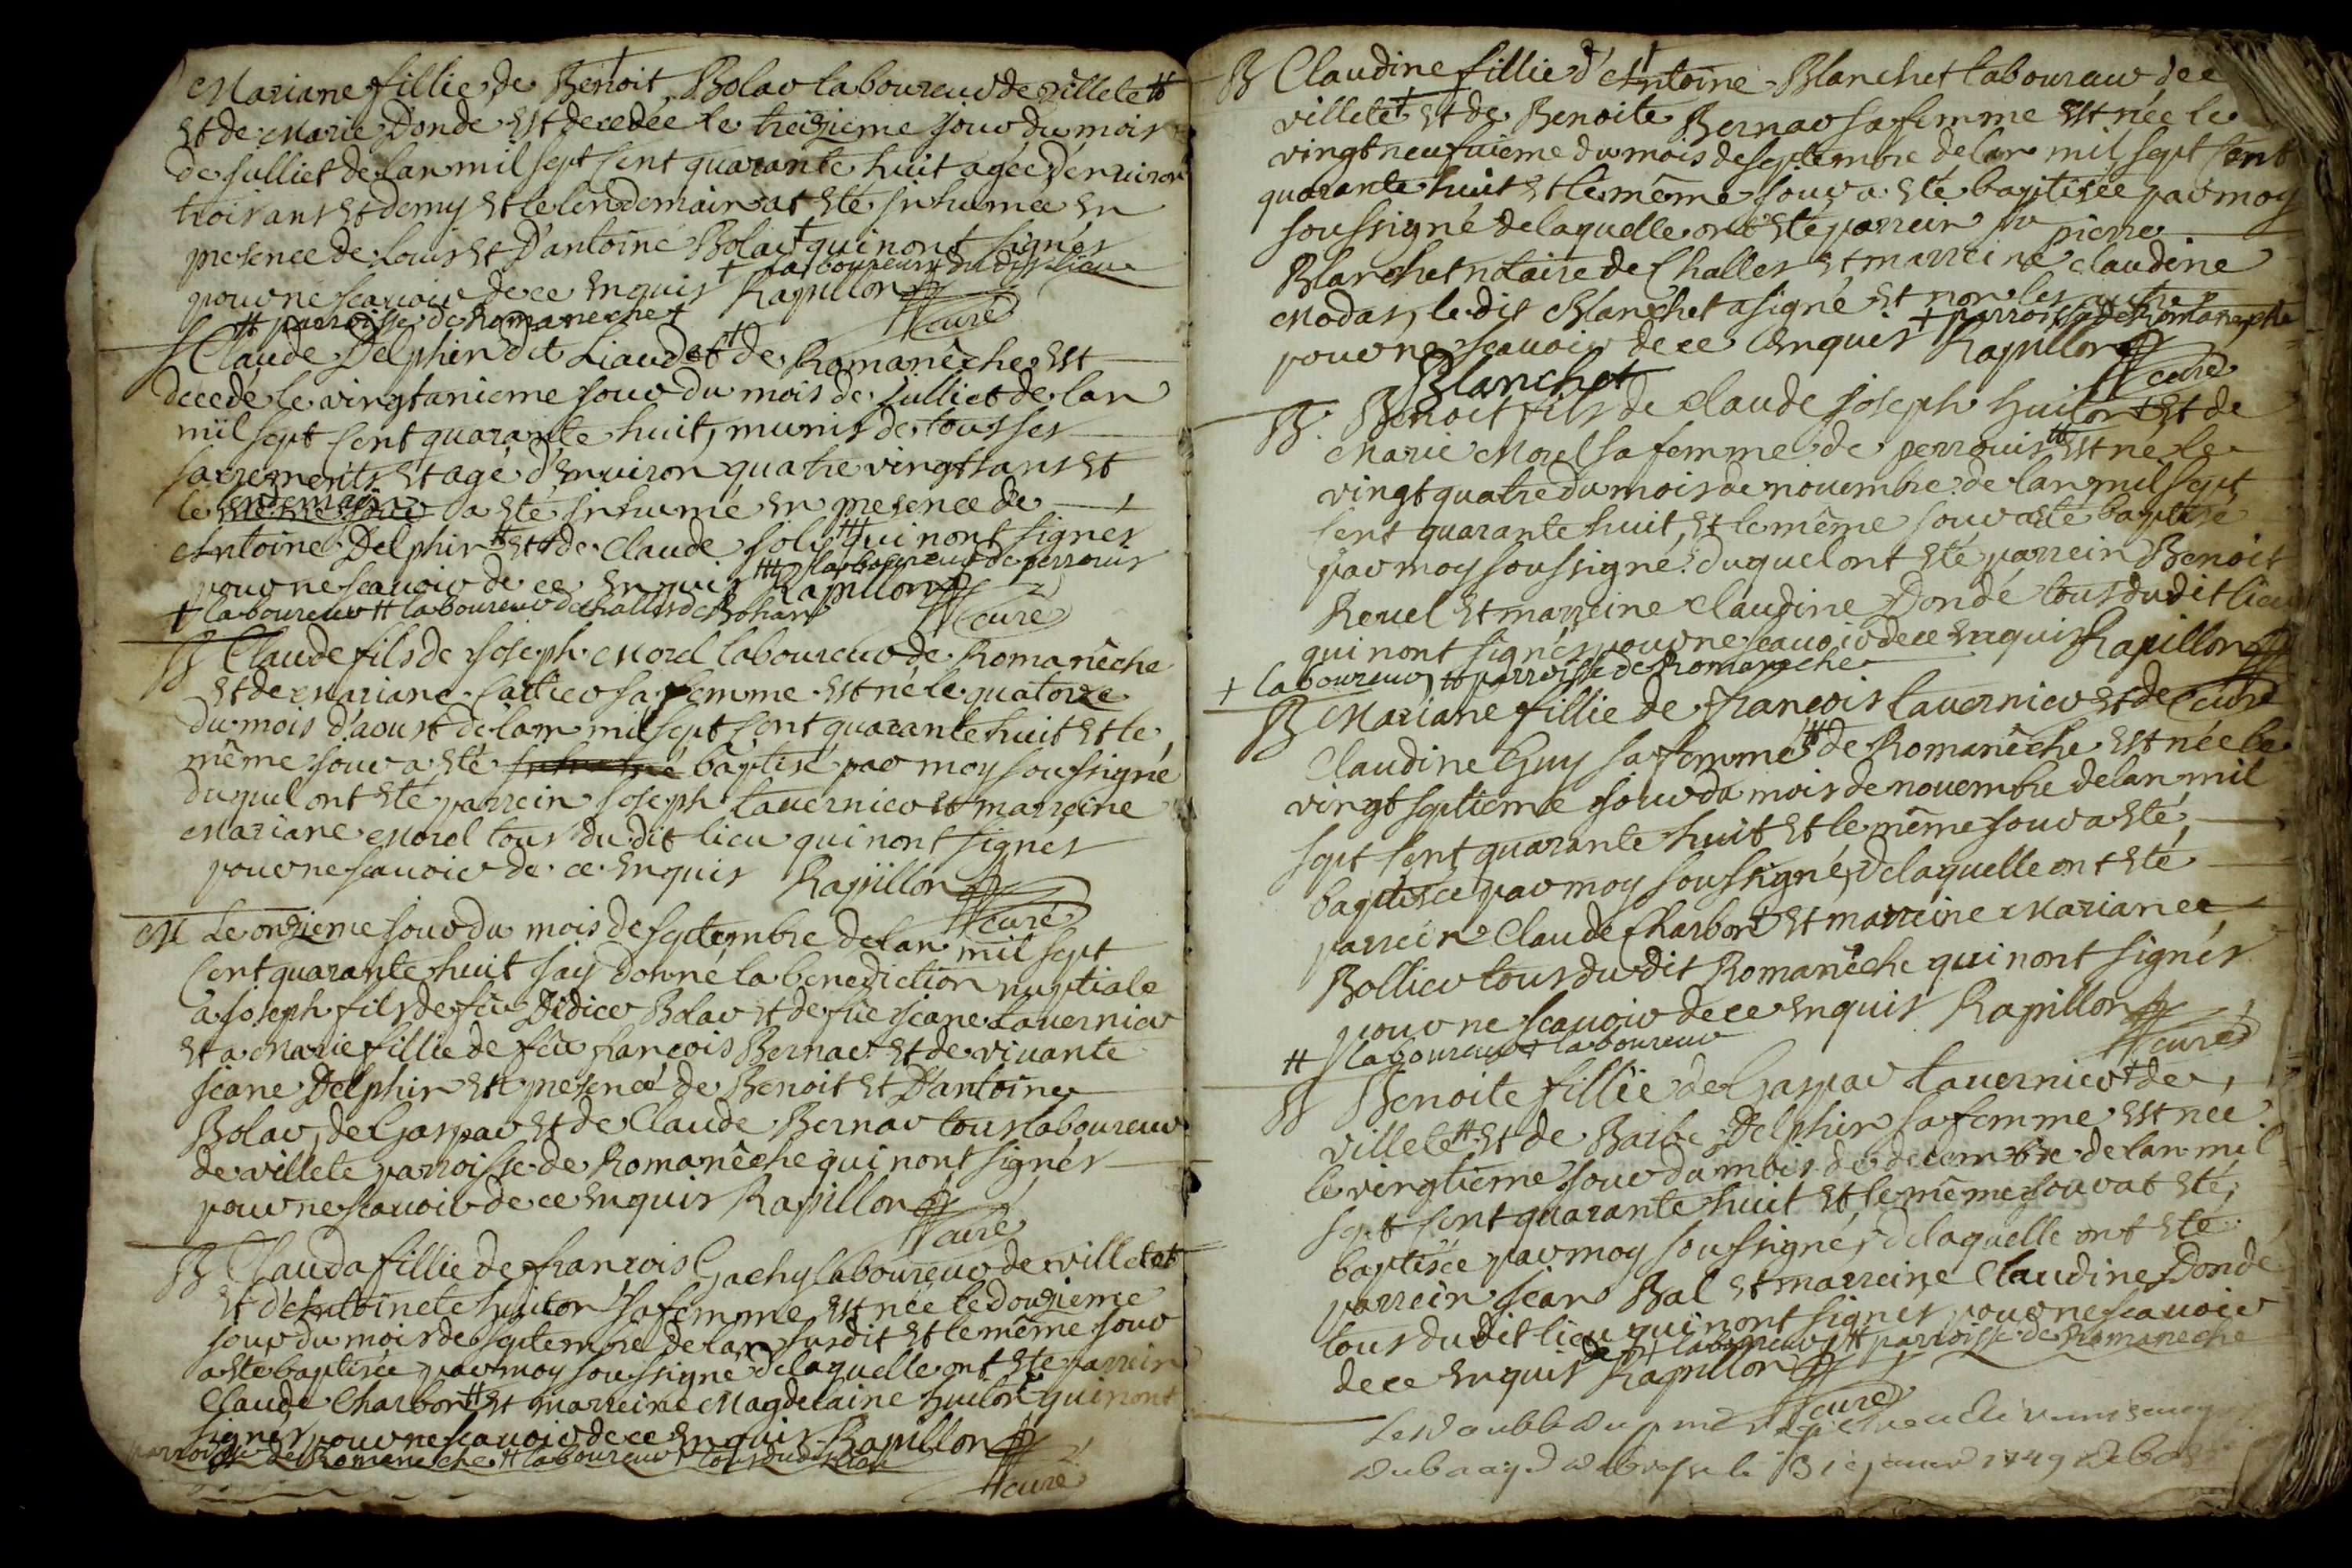 Mariane fillie de Benoit Bolar laboureur de villete #
et de Marie Donde est decedée le treizieme jour du mois
de julliet de lan mil sept cent quarante huit agée denviron
trois ans et demy et le lendemain at esté inhumée en
presence de Louis et D'antoine Bolar + qui nont signés
+ laboureurs du dit lieu
pour ne scauoir de ce enquis Rapillon
# parroisse de Romaneche + curé
S Claude Delphin dit Liaudet # de Romanêche est
decedé le vingtanieme jour du mois de julliet de lan
mil sept cent quarante huit, munis de tous ses
sacrements et agé d'enuiron quatre vingt ans et
lendemain
le même jour a esté inhumé en presence de
Antoine Delphin # et de Claude joly ### qui nont signes
pour ne scauoir de ce enquis ### laboureur de perrouis Rapillon
+ laboureur # laboureur de challes de Bohan curé
B Claude fils de Joseph Morel laboureur de Romanêche
et de Mariane Cartier sa femme est né le quatorze
du mois d'aoust de lan mil sept cent quarante huit et le
même jour a esté inhumé baptisé par moy soussigné
duquel ont esté parrein joseph tauernier et marreine
Mariane Morel tous du dit lieu qui nont signés
pour ne scauoir de ce enquis Rapillon
curé
M Le onzieme jour du mois de septembre de lan mil sept
cent quarante huit jay donné la benediction nuptiale
à joseph fils de feu Didier Bolar et de fue jeane tauernier
et a Marie fillie de feu francois Bernar et de viuante
jeane Delphin et presence de Benoit et D'antoine
Bolar, de Gaspar et de Claude Bernar tous laboureur
de villete parroisse de Romanêche qui nont signés
pour ne scauoir de ce enquis Rapillon
curé
B Clauda fillie de francois Gachy laboureur de villetet
et d'Antoinete huiton sa femme est née le douzieme
jour du mois de septembre de lan susdit et le même jour
a esté baptisée par moy soussigné de laquelle ont esté parrein
Claude Charbon # et marreine Magdelaine huiton + qui nont
signes pour ne scauoir de ce enquis Rapillon
parroisse de Romaneche # laboureur + tous du dit lieu
curé
B Claudine fillie d'Antoine Blanchet laboureur de
villete + et de Benoite Bernar sa femme est née le
vingt neufuieme du mois de septembre de lan mil sept cent
quarante huit et le même jour a esté baptisée par moy
soussigné de laquelle ont esté parrein sr pierre
Blanchet notaire de Challes et marreine Claudine
Modas, le dit Blanchet a signé et non les autres
+ parroisse de Romaneche
pour ne scauoir de ce enquis Rapillon
Blanchet curé
B. Benoit fils de Claude joseph huiton + et de
Marie Morel sa femme de perrouis # est né le
vingt quatre du mois de nouembre de lan mil sept
cent quarante huit, et le même jour a esté baptisé
par moy soussigné duquel ont esté parrein Benoit
Reuel et marreine Claudine Dondé tous du dit lieu
qui nont signés pour ne scauoir de ce enquis Rapillon
+ laboureur, # parroisse de Romaneche
curé
B Mariane fillie de francois tauernier et de
Claudine Guy sa femme # de Romanêche est née le
vingt septieme jour du mois de nouembre de lan mil
sept cent quarante huit et le même jour a esté
baptisée par moy soussigné, de laquelle ont esté
parrein Claude Charbon + et marreine Mariane
Bollier tous du dit Romanêche qui nont signés
pour ne scauoir de ce enquis Rapillon
# laboureur + laboureur curé
B Benoite fillie de Gaspar tauernier + de
villete # et de Barbe Delphin sa femme est née
le vingtieme jour du mois de decembre de lan mil
sept cent quarante huit et le même jour at esté
baptisée par moy soussigné, de laquelle ont esté
parrein jean Bal et marreine Claudine Dondé
tous du dit lieu qui nont signés pour ne scauoir
+ laboureur # parroisse de Romaneche
de ce enquis Rapillon
curé
Le double du
le 31e 1749